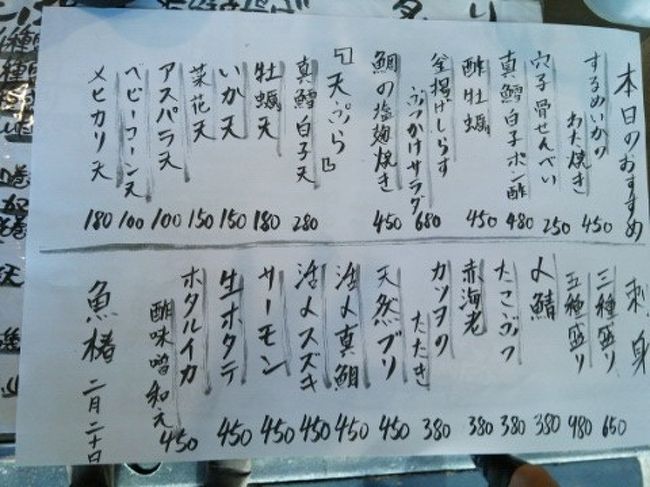 本日のおすすめ
するめいかの
わた焼き 450
穴子骨せんべい 250
真鱈白子ポン酢 480
酢牡蠣 450
釜揚げしらす
ぶっかけサラダ 680
鯛の塩麹焼き 450
「天ぷら」
真鱈白子天 280
牡蠣天 180
いか天 150
菜花天 150
アスパラ天 100
ベビーコーン天 100
メヒカリ天 180
刺身
三種盛り 650
五種盛り 980
〆鯖 380
たこぶつ 380
赤海老 380
カツヲの
たたき 380
天然ブリ 450
活〆真鯛 450
活〆スズキ 450
サーモン 450
生ホタテ 450
ホタルイカ
酢味噌和え 450
魚椿 二月二十日